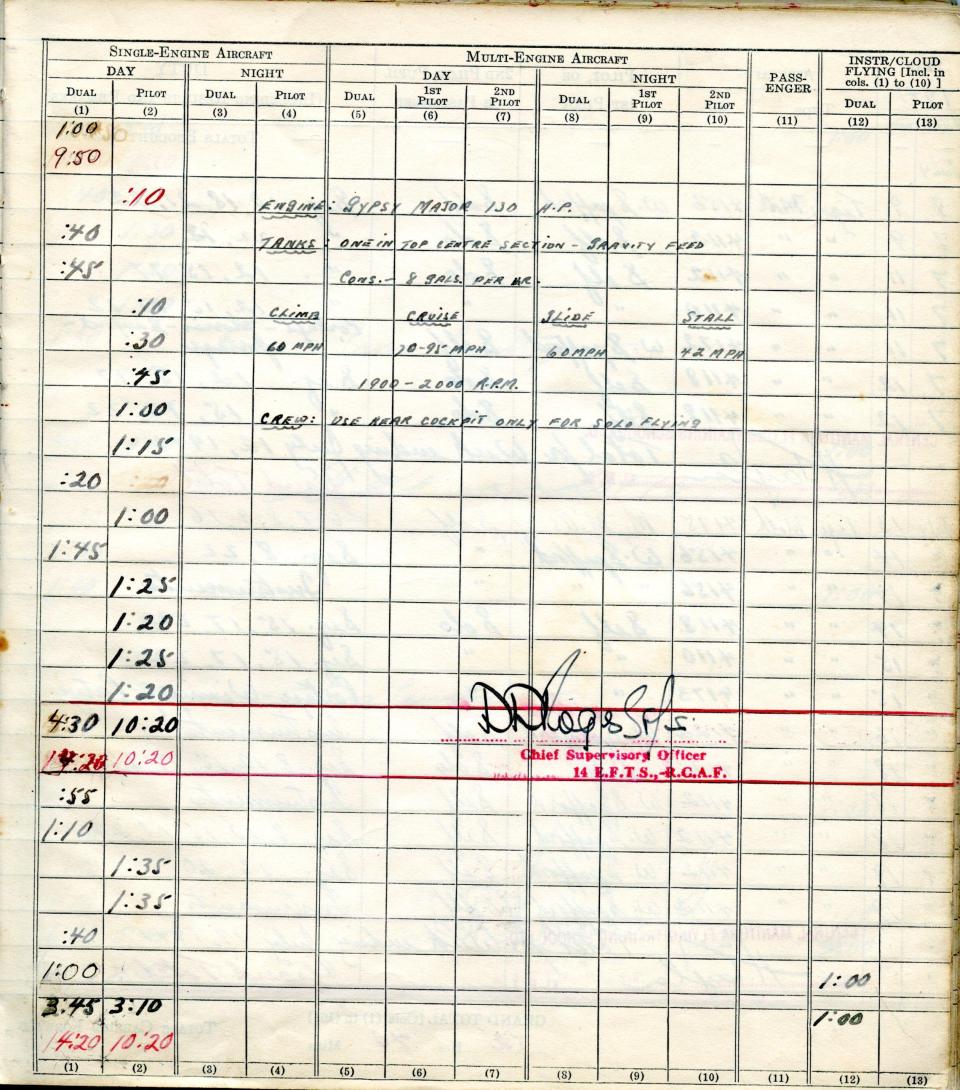 SINGLE-ENGINE AIRCRAFT MULTI-ENGINE AIRCRAFT PASS-ENGER INSTR/CLOUD FLYING [Incl. in cols. (1) to (10) ]
DAY NIGHT DAY NIGHT
DUAL PILOT DUAL PILOT DUAL 1ST PILOT 2ND PILOT DUAL 1ST PILOT 2ND PILOT DUAL PILOT
(1) (2) (3) (4) (5) (6) (7) (8) (9) (10) (11) (12) (13)
1:00
9:50
:10
ENGINE: GYPSY MAJOR 130 H.P.
:40
TANKS: ONE IN TOP CENTRE SECTION - GRAVITY FEED
:45
CONS. - 8 GALS. PER HR.
:10 CLIMB CRUISE GLIDE STALL
:30 60 MPH 70-95 MPH 60 MPH 42 MPH
:45
1900 - 2000 R.P.M.
1:00
CREW: USE REAR COCKPIT ONLY FOR SOLO FLYING
1:15
:20
1:00
1:45
1:25
1:20
1:25
1:20
4:30 10:20
10:20 Chief Supervisory Officer
14 E.F.T.S.,-R.C.A.F.
:55
1:10
1:35
1:35
:40
1:00 1:00
3:45 3:10 1:00
14:20 10:20
(1) (2) (3) (4) (5) (6) (7) (8) (9) (10) (11) (12) (13)